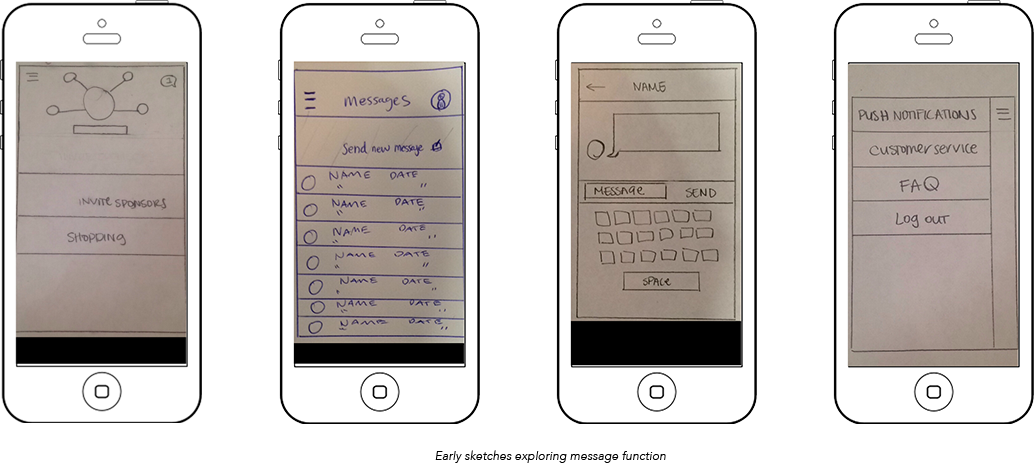 INVITE SPONSORS
SHOPPING
messages
Send new message
NAME DATE
" "
NAME DATE
" "
NAME DATE
" "
NAME DATE
" "
NAME DATE
" "
NAME DATE
" "
NAME DATE
" "
NAME
MESSAGE SEND
SPACE
PUSH NOTIFICATIONS
customer service
FAQ
Log out
Early sketches exploring message function